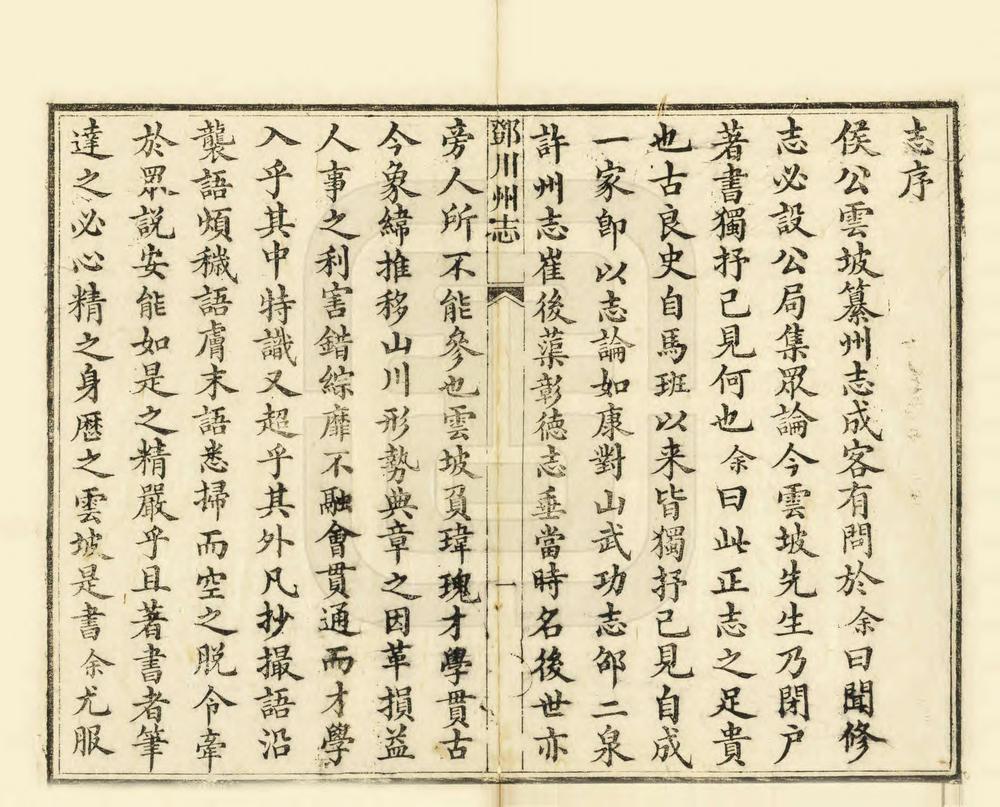 志序
侯公雲坡纂州志成客有問於余曰聞修
志必設公局集眾論今雲坡先生乃閉户
著書獨抒己見何也余曰此正志之足貴
也古良史自馬班以来皆獨抒己見自成
一家即以志論如康對山武功志邰二泉
許州志崔後蕖彰德志垂當時名後世亦
鄧川州志
一
旁人所不能參也雲坡負瑋瑰才學貫古
今象緯推移山川形勢典章之因革損益
人事之利害錯綜靡不融會貫通而才學
入乎其中特識又超乎其外凡抄撮語沿
襲語煩穢語膚末語悉掃而空之脱令牽
於眾説安能如是之精嚴乎且著書者筆
達之必心精之身歷之雲坡是書余尤服